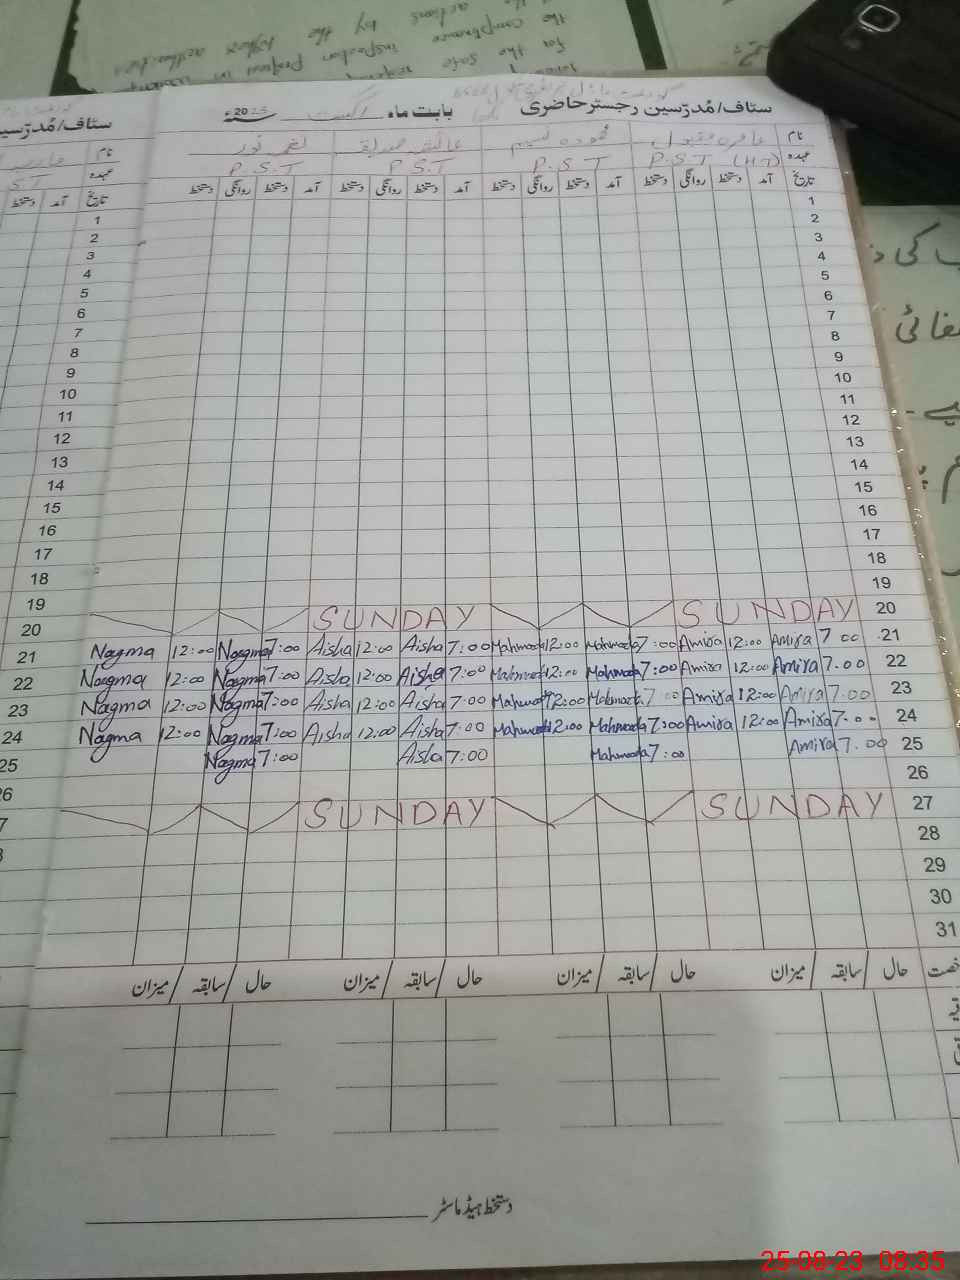 سٹاف/مُدرّسین رجسٹر حاضری بابت ماہ اگست 2023ء
نام عامرہ مقبول محمودہ نسیم عائشہ صدیقہ نغمہ نور
عہدہ P.S.T (H.T) P.S.T P.S.T P.S.T
تاریخ آمد دستخط روانگی دستخط آمد دستخط روانگی دستخط آمد دستخط روانگی دستخط آمد دستخط روانگی دستخط
1
2
3
4
5
6
7
8
9
10
11
12
13
14
15
16
17
18
19
20 SUNDAY SUNDAY
21 7 00 Amira 12:00 Amira 7:00 Mahmooda 12:00 Mahmooda 7:00 Aisha 12:00 Aisha 7:00 Nagma 12:00 Nagma
22 7.00 Amira 12:00 Amira 7:00 Mahmooda 12:00 Mahmooda 7:00 Aisha 12:00 Aisha 7:00 Nagma 12:00 Nagma
23 7.00 Amira 12:00 Amira 7:00 Mahmooda 12:00 Mahmooda 7:00 Aisha 12:00 Aisha 7:00 Nagma 12:00 Nagma
24 7.00 Amira 12:00 Amira 7:00 Mahmooda 12:00 Mahmooda 7:00 Aisha 12:00 Aisha 7:00 Nagma 12:00 Nagma
25 7.00 Amira 7:00 Mahmooda 7:00 Aisha 7:00 Nagma
26
27 SUNDAY SUNDAY
28
29
30
31
حال / سابقہ / میزان حال / سابقہ / میزان حال / سابقہ / میزان حال / سابقہ / میزان
دستخط ہیڈ ماسٹر
سٹاف/مُدرّسین
نام
عہدہ S.T
تاریخ آمد دستخط
1
2
3
4
5
6
7
8
9
10
11
12
13
14
15
16
17
18
19
20
21
22
23
24
25
25-08-23 08:35